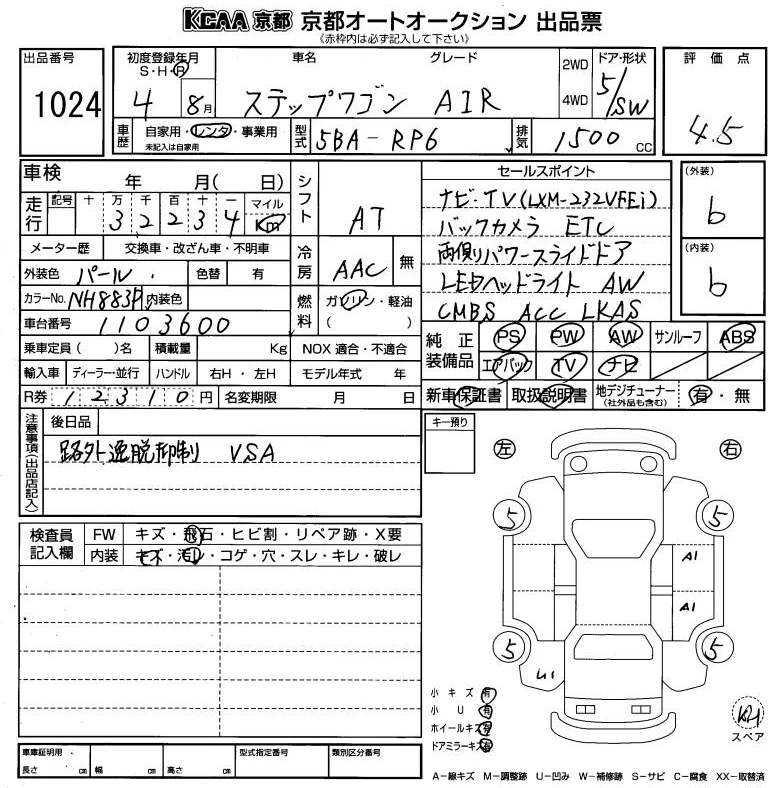 KCAA 京都 京都オートオークション 出品票
《赤枠内は必ず記入して下さい》
出品番号 1024
初度登録年月 S・H・R 4 8月
車名 ステップワゴン グレード AIR
2WD 4WD
ドア・形状 5/SW
評価点 4.5
車歴 自家用・レンタ・事業用 未記入は自家用
型式 5BA-RP6
排気 1500 CC
車検 年 月( 日)
シフト AT
走行 記号 十 万 千 百 十 一 マイル Km
3 2 2 3 4
メーター歴 交換車・改ざん車・不明車
冷房 AAC 無
外装色 パール 色替 有
カラーNo. NH883P 内装色
燃料 ガソリン・軽油 ( )
車台番号 1103600
乗車定員 ( )名 積載量 Kg NOX 適合・不適合
輸入車 ディーラー・並行 ハンドル 右H・左H モデル年式 年
R券 12310円 名変期限 月 日
セールスポイント
ナビ・TV(LXM-232VFEi)
バックカメラ ETC
両側パワースライドドア
LEDヘッドライト AW
CMBS ACC LKAS
(外装) b
(内装) b
純正装備品 PS PW AW サンルーフ ABS
エアバック TV ナビ
新車保証書 取扱説明書 地デジチューナー (社外品も含む) 有・無
注意事項(出品店記入)
後日品
路外逸脱抑制 VSA
キー預り
左 右
5 5
A1
A1
5 5
U1
検査員記入欄 FW キズ・飛石・ヒビ割・リペア跡・X要
内装 キズ・汚レ・コゲ・穴・スレ・キレ・破レ
小キズ 有
小U 有
ホイールキズ 有
ドアミラーキズ 有
スペア
車庫証明用 型式指定番号 類別区分番号
長さ cm 幅 cm 高さ cm
A-線キズ M-調整跡 U-凹み W-補修跡 S-サビ C-腐食 XX-取替済